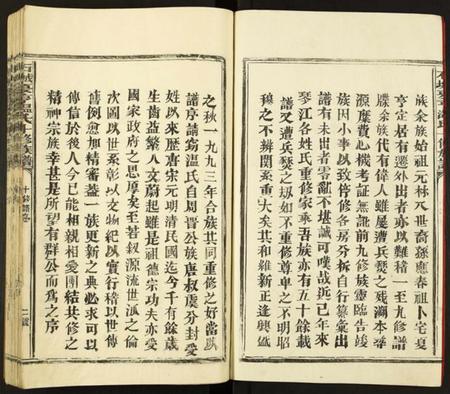 族余族始祖元林八世裔孫應春祖卜宅夏
亨定居有遷外出者亦以難稽一至九修譜
余族代有偉人雖屢遭兵燹之殘瀕本尋
源糜費心機考証無訛前九修族靈臨告竣
族因小事以致停修各房分拆自行纂彙出
譜有未出者零亂不堪誠可嘆哉近已年來
琴江各姓民宗聯宗奉吾族亦有五十餘載
譜又遭兵燹之如不重修尊卑之不明昭
穆之不辨關系重大矣其和維新正逢興
之秋一九九三年合族共同重修之好當
譜序請芴溫氏自周晋公族唐叔虞分封受
姓以來歷唐宋元明清民國迄今千有餘歲
生齒益繁人文蔚起雖是祖德宗功夫亦受
國家政府之思厚矣至若叙源流世派之倫
次圖以世系彰以文物紀以實行稽以世傳
舊例愈加精審蓋一族更新之典必求可以
傳信於後人今已能相親相愛團結共修之
精神宗族幸甚是所望有群公而為之序